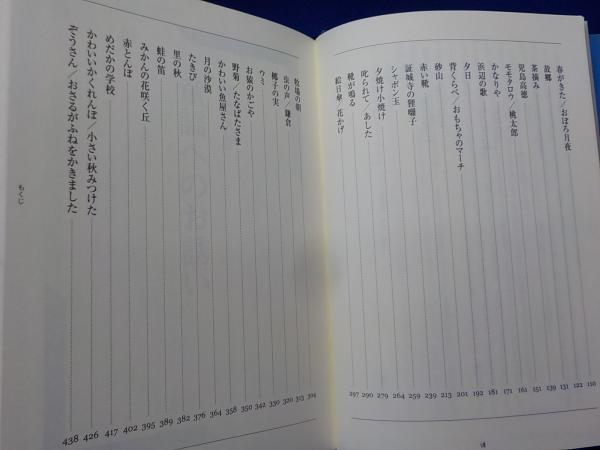 春がきた／おぼろ月夜 110
故郷 122
茶摘み 131
児島高徳 139
モモタロウ／桃太郎 151
かなりや 161
浜辺の歌 171
夕日 181
背くらべ／おもちゃのマーチ 192
砂山 201
赤い靴 213
証城寺の狸囃子 239
シャボン玉 259
夕焼け小焼け 264
叱られて／あした 279
靴が鳴る 290
絵日傘／花かげ 297
牧場の朝 304
虫の声／鎌倉 313
椰子の実 320
ウミ 330
お猿のかごや 342
野菊／たなばたさま 350
かわいい魚屋さん 358
月の沙漠 364
たきび 376
里の秋 382
蛙の笛 389
みかんの花咲く丘 395
赤とんぼ 402
めだかの学校 417
かわいいかくれんぼ／小さい秋みつけた 426
ぞうさん／おさるがふねをかきました 438
もくじ